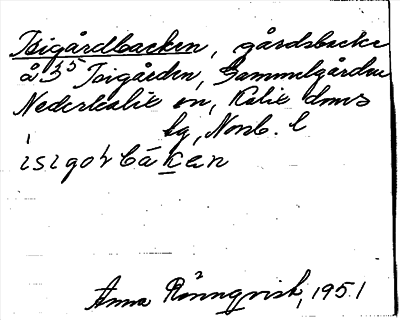 Isigårdbacken, gårdsbacke
å 35 Isigården, Gammelgården
Nederkalix sn, Kalix dmvs
tg, Norrb. l
isigo'rbákan
Anna Rönnqvist, 1951